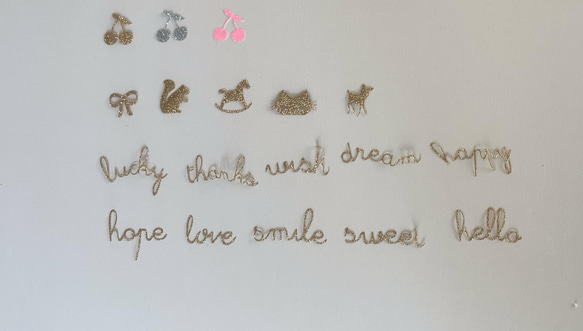 lucky thanks wish dream happy
hope love smile sweet hello